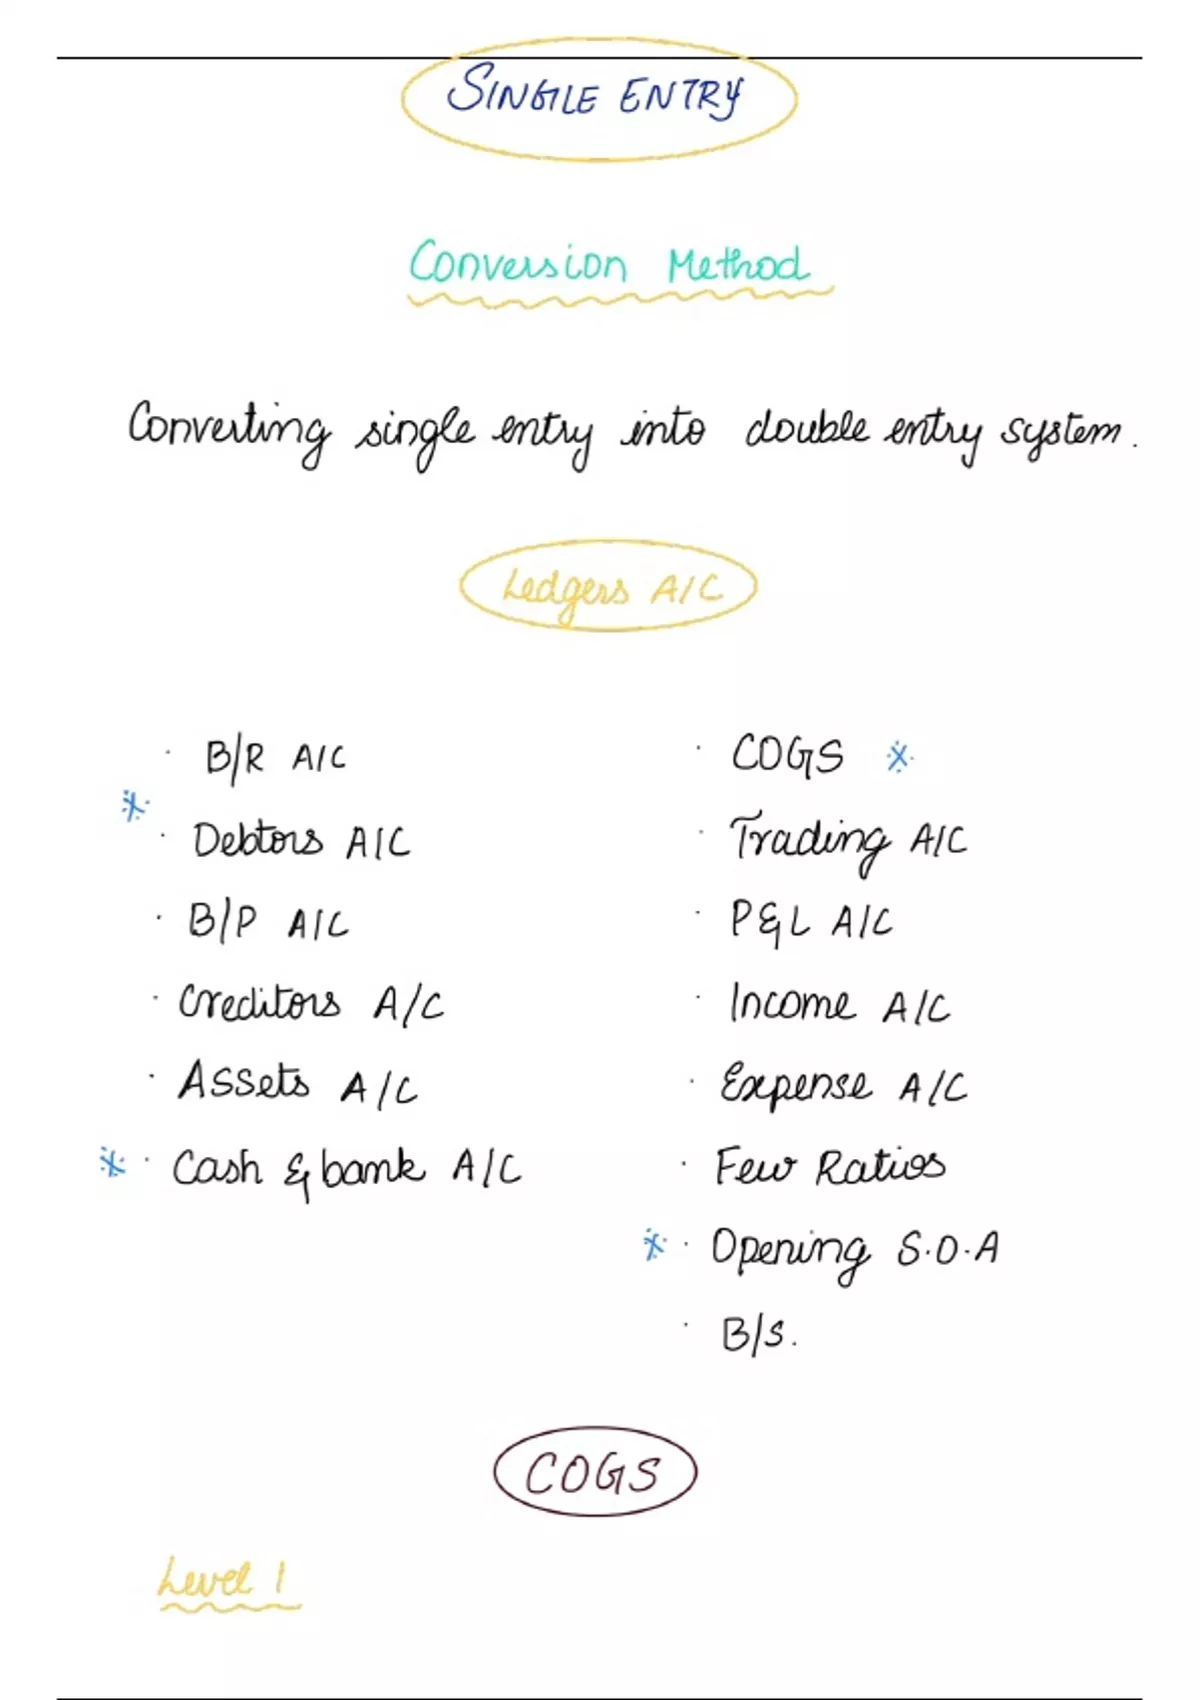 SINGLE ENTRY
Conversion Method
Converting single entry into double entry system.
Ledgers A/C
· B/R A/C
· Debtors A/C
· B/P A/C
· Creditors A/C
· Assets A/C
· Cash & bank A/C
· COGS
· Trading A/C
· P&L A/C
· Income A/C
· Expense A/C
· Few Ratios
· Opening S.O.A
· B/S.
COGS
Level 1